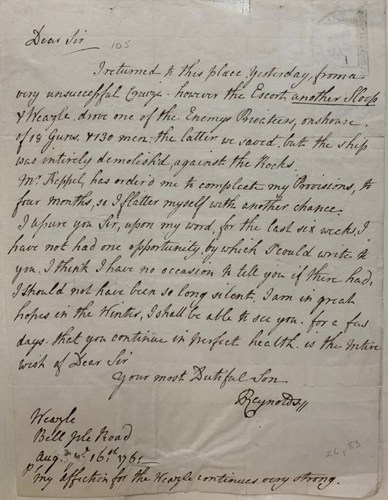 Dear Sir
105
I returned to this place yesterday, from a
very unsuccessful Cruize - however the Escort, another Sloop
& Weazle, drove one of the Enemys Privateers, on shore.
of 18 Guns, & 130 men, the latter we saved, but the ship
was entirely demolish'd against the Rocks.
Mr. Keppel, has order'd me to compleet my Provisions, to
four months, so I flatter myself with another chance.
I assure you Sir, upon my word, for the last six weeks, I
have not had one opportunity by which I could write to
you. I think I have no occasion to tell you if there had,
I should not have been so long silent. I am in great
hopes in the Winter, I shall be able to see you. for a few
days. that you continue in perfect health. is the Intire
wish of Dear Sir
Your most Dutiful Son
Reynolds
Weazle
Bell Isle Road
Augst 16th 1761
Ps my affection for the Weazle continues very strong.